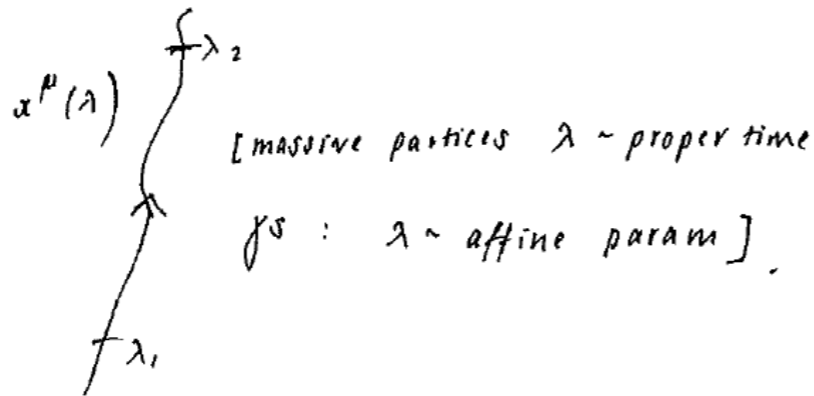 λ₂
x^μ(λ)
[massive partices λ ~ proper time
γs : λ ~ affine param].
λ₁